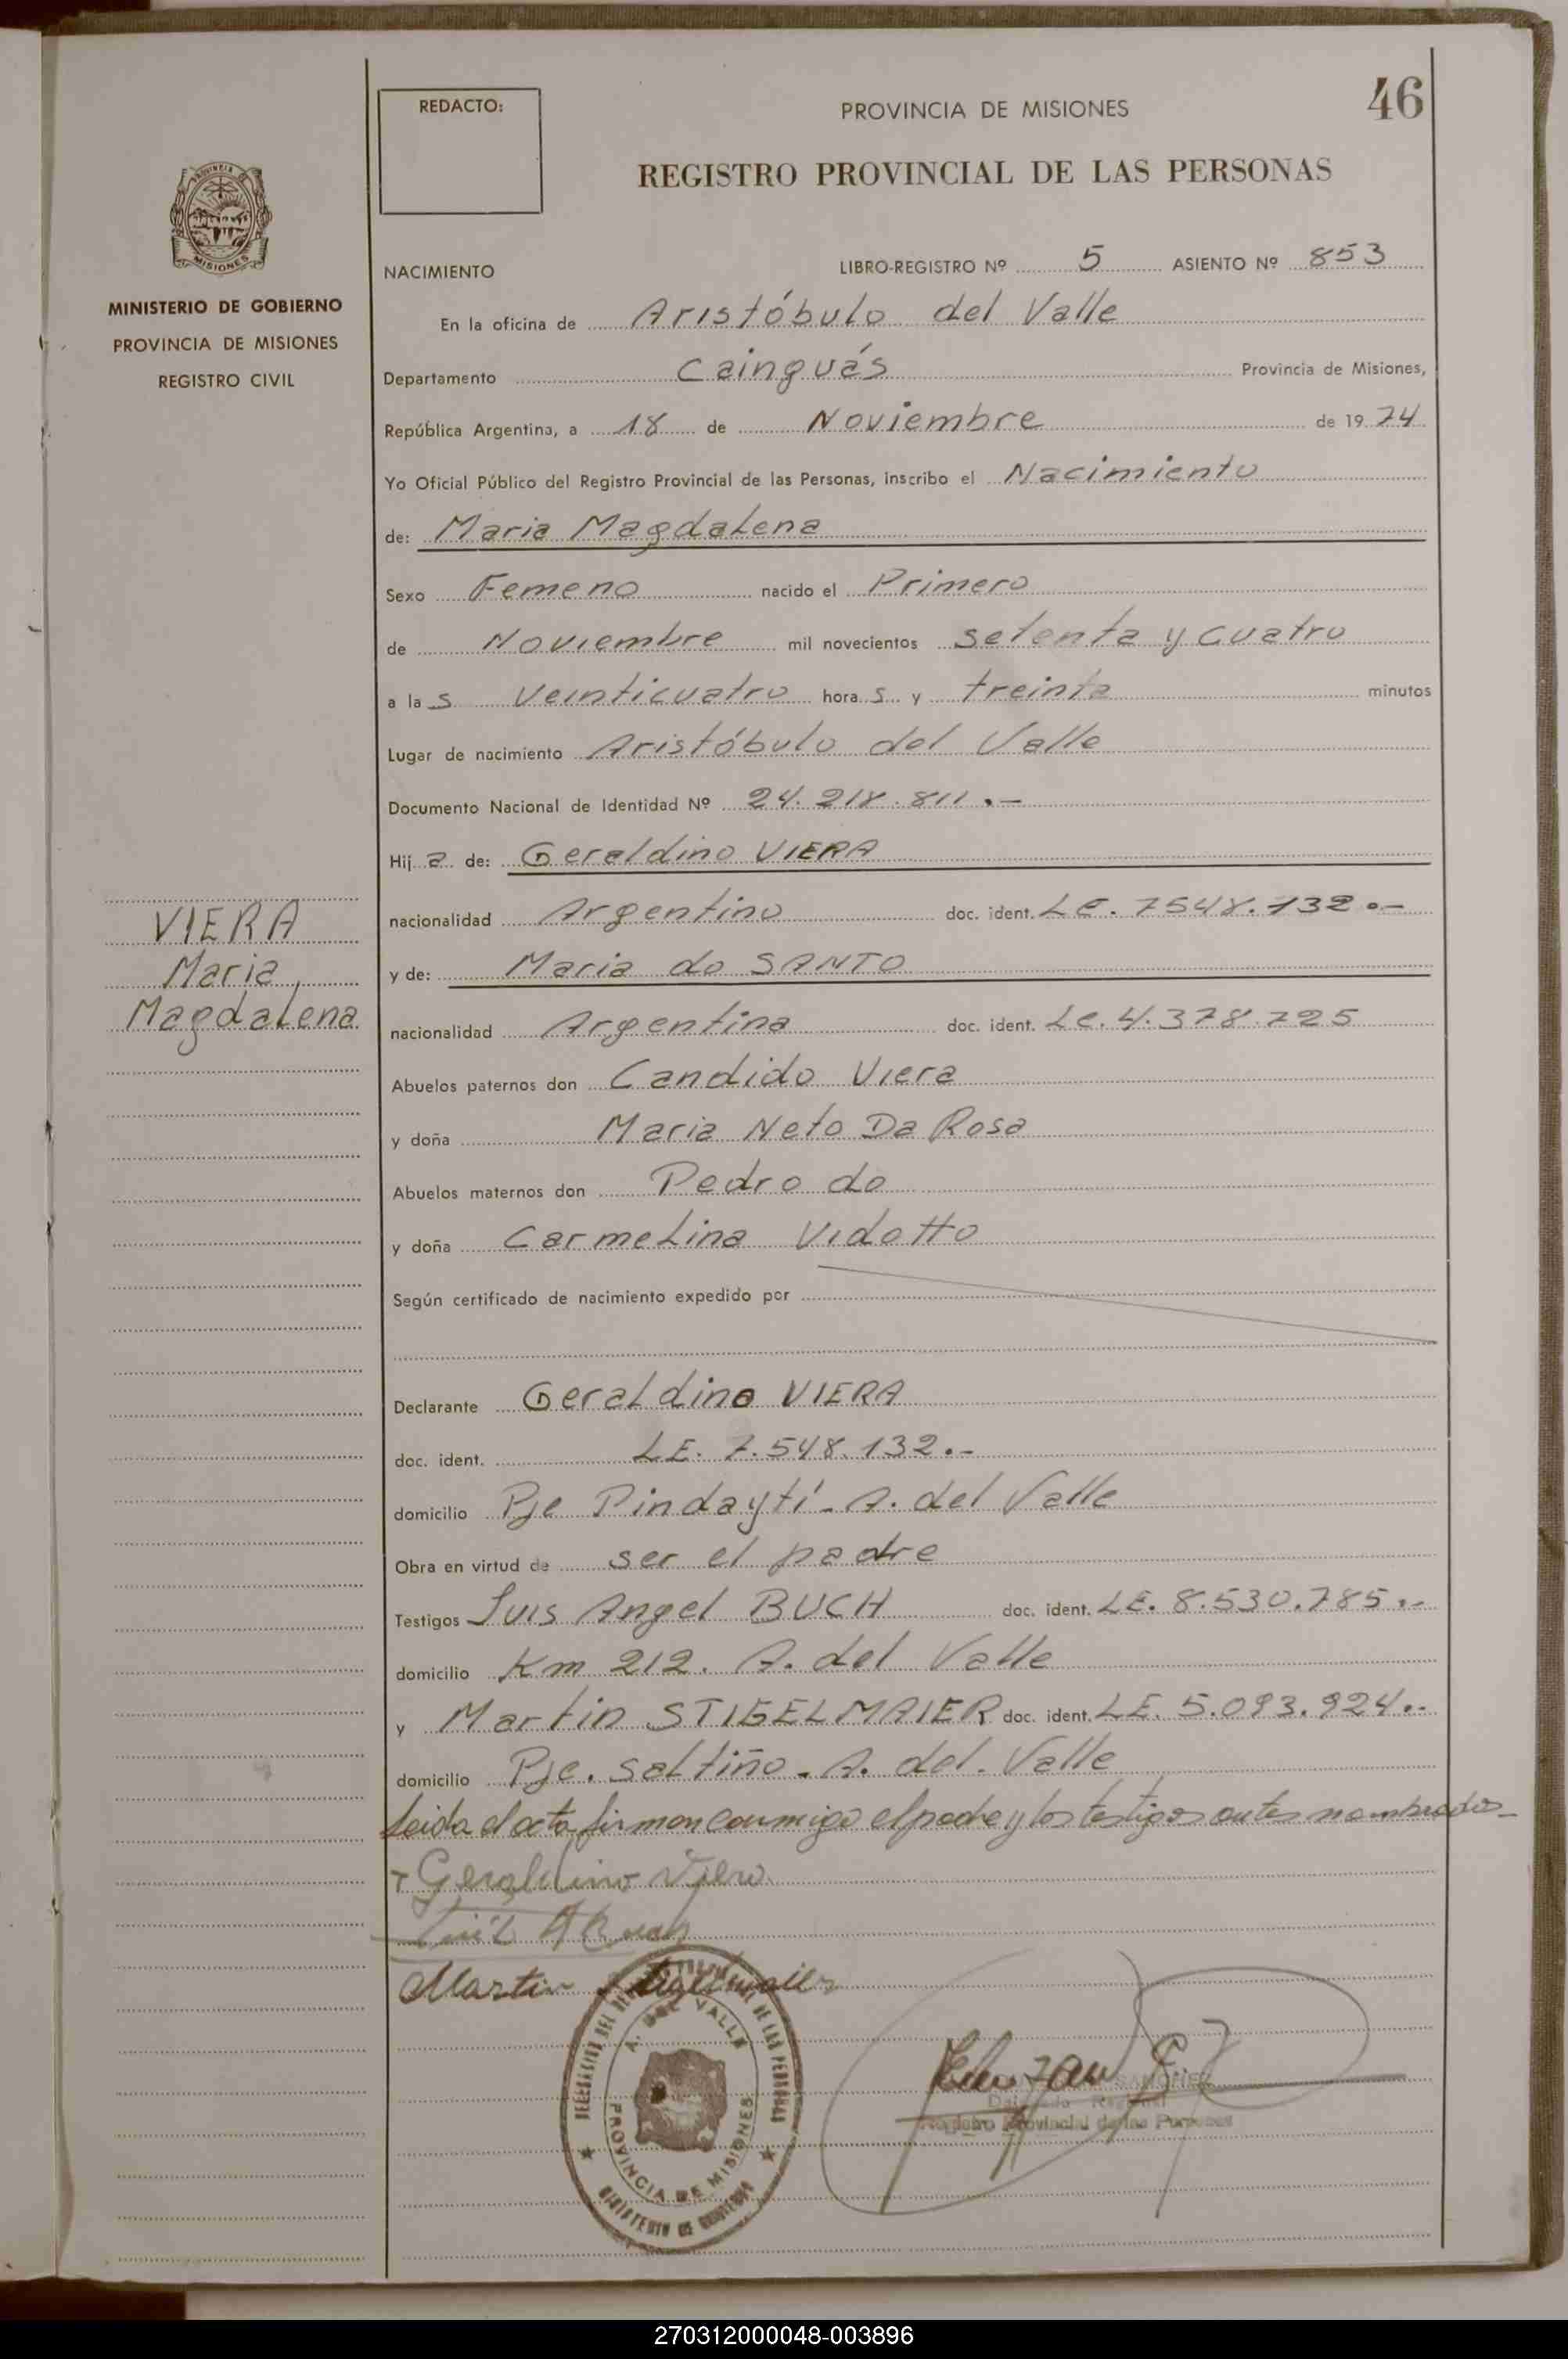 46
REDACTO:
PROVINCIA DE MISIONES
REGISTRO PROVINCIAL DE LAS PERSONAS
PROVINCIA DE
MISIONES
MINISTERIO DE GOBIERNO
PROVINCIA DE MISIONES
REGISTRO CIVIL
NACIMIENTO LIBRO-REGISTRO Nº 5 ASIENTO Nº 853
En la oficina de Aristóbulo del Valle
Departamento Cainguás Provincia de Misiones,
República Argentina, a 18 de Noviembre de 1974
Yo Oficial Público del Registro Provincial de las Personas, inscribo el Nacimiento
de: Maria Magdalena
Sexo Femeno nacido el Primero
de Noviembre mil novecientos setenta y cuatro
a las veinticuatro horas y treinta minutos
Lugar de nacimiento Aristóbulo del Valle
Documento Nacional de Identidad Nº 24.218.811.-
Hija de: Geraldino VIERA
nacionalidad Argentino doc. ident. LE. 7548.132.-
VIERA
Maria
Magdalena
y de: Maria do SANTO
nacionalidad Argentina doc. ident. Lc. 4.378.725
Abuelos paternos don Candido Viera
y doña Maria Neto Da Rosa
Abuelos maternos don Pedro do
y doña Carmelina Vidotto
Según certificado de nacimiento expedido por
Declarante Geraldino VIERA
doc. ident. LE. 7.548.132.-
domicilio Pje Pindaytí - A. del Valle
Obra en virtud de ser el padre
Testigos Luis Angel BUCH doc. ident. LE. 8.530.785.-
domicilio Km 212. A. del Valle
y Martin STIGELMAIER doc. ident. LE. 5.093.924.-
domicilio Pje. saltiño - A. del. Valle
Leida el acta firman conmigo el padre y los testigos antes nombrados-
Geraldino Viera
Martin
A. DEL VALLE
PROVINCIA DE MISIONES
SANCHEZ
Registro Provincial de las Personas
270312000048-003896